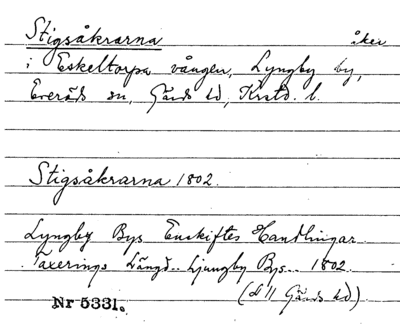 Stigsåkrarna åker
i Eskeltorpa vången, Lyngby by,
Everöds sn, Gärds hd, Kristd. l.
Stigsåkrarna 1802.
Lyngby Bys Enskiftes Handlingar
Taxerings Längd.. Ljungby Bys.. 1802.
(L 11 Gärds hd)
Nr 5331.